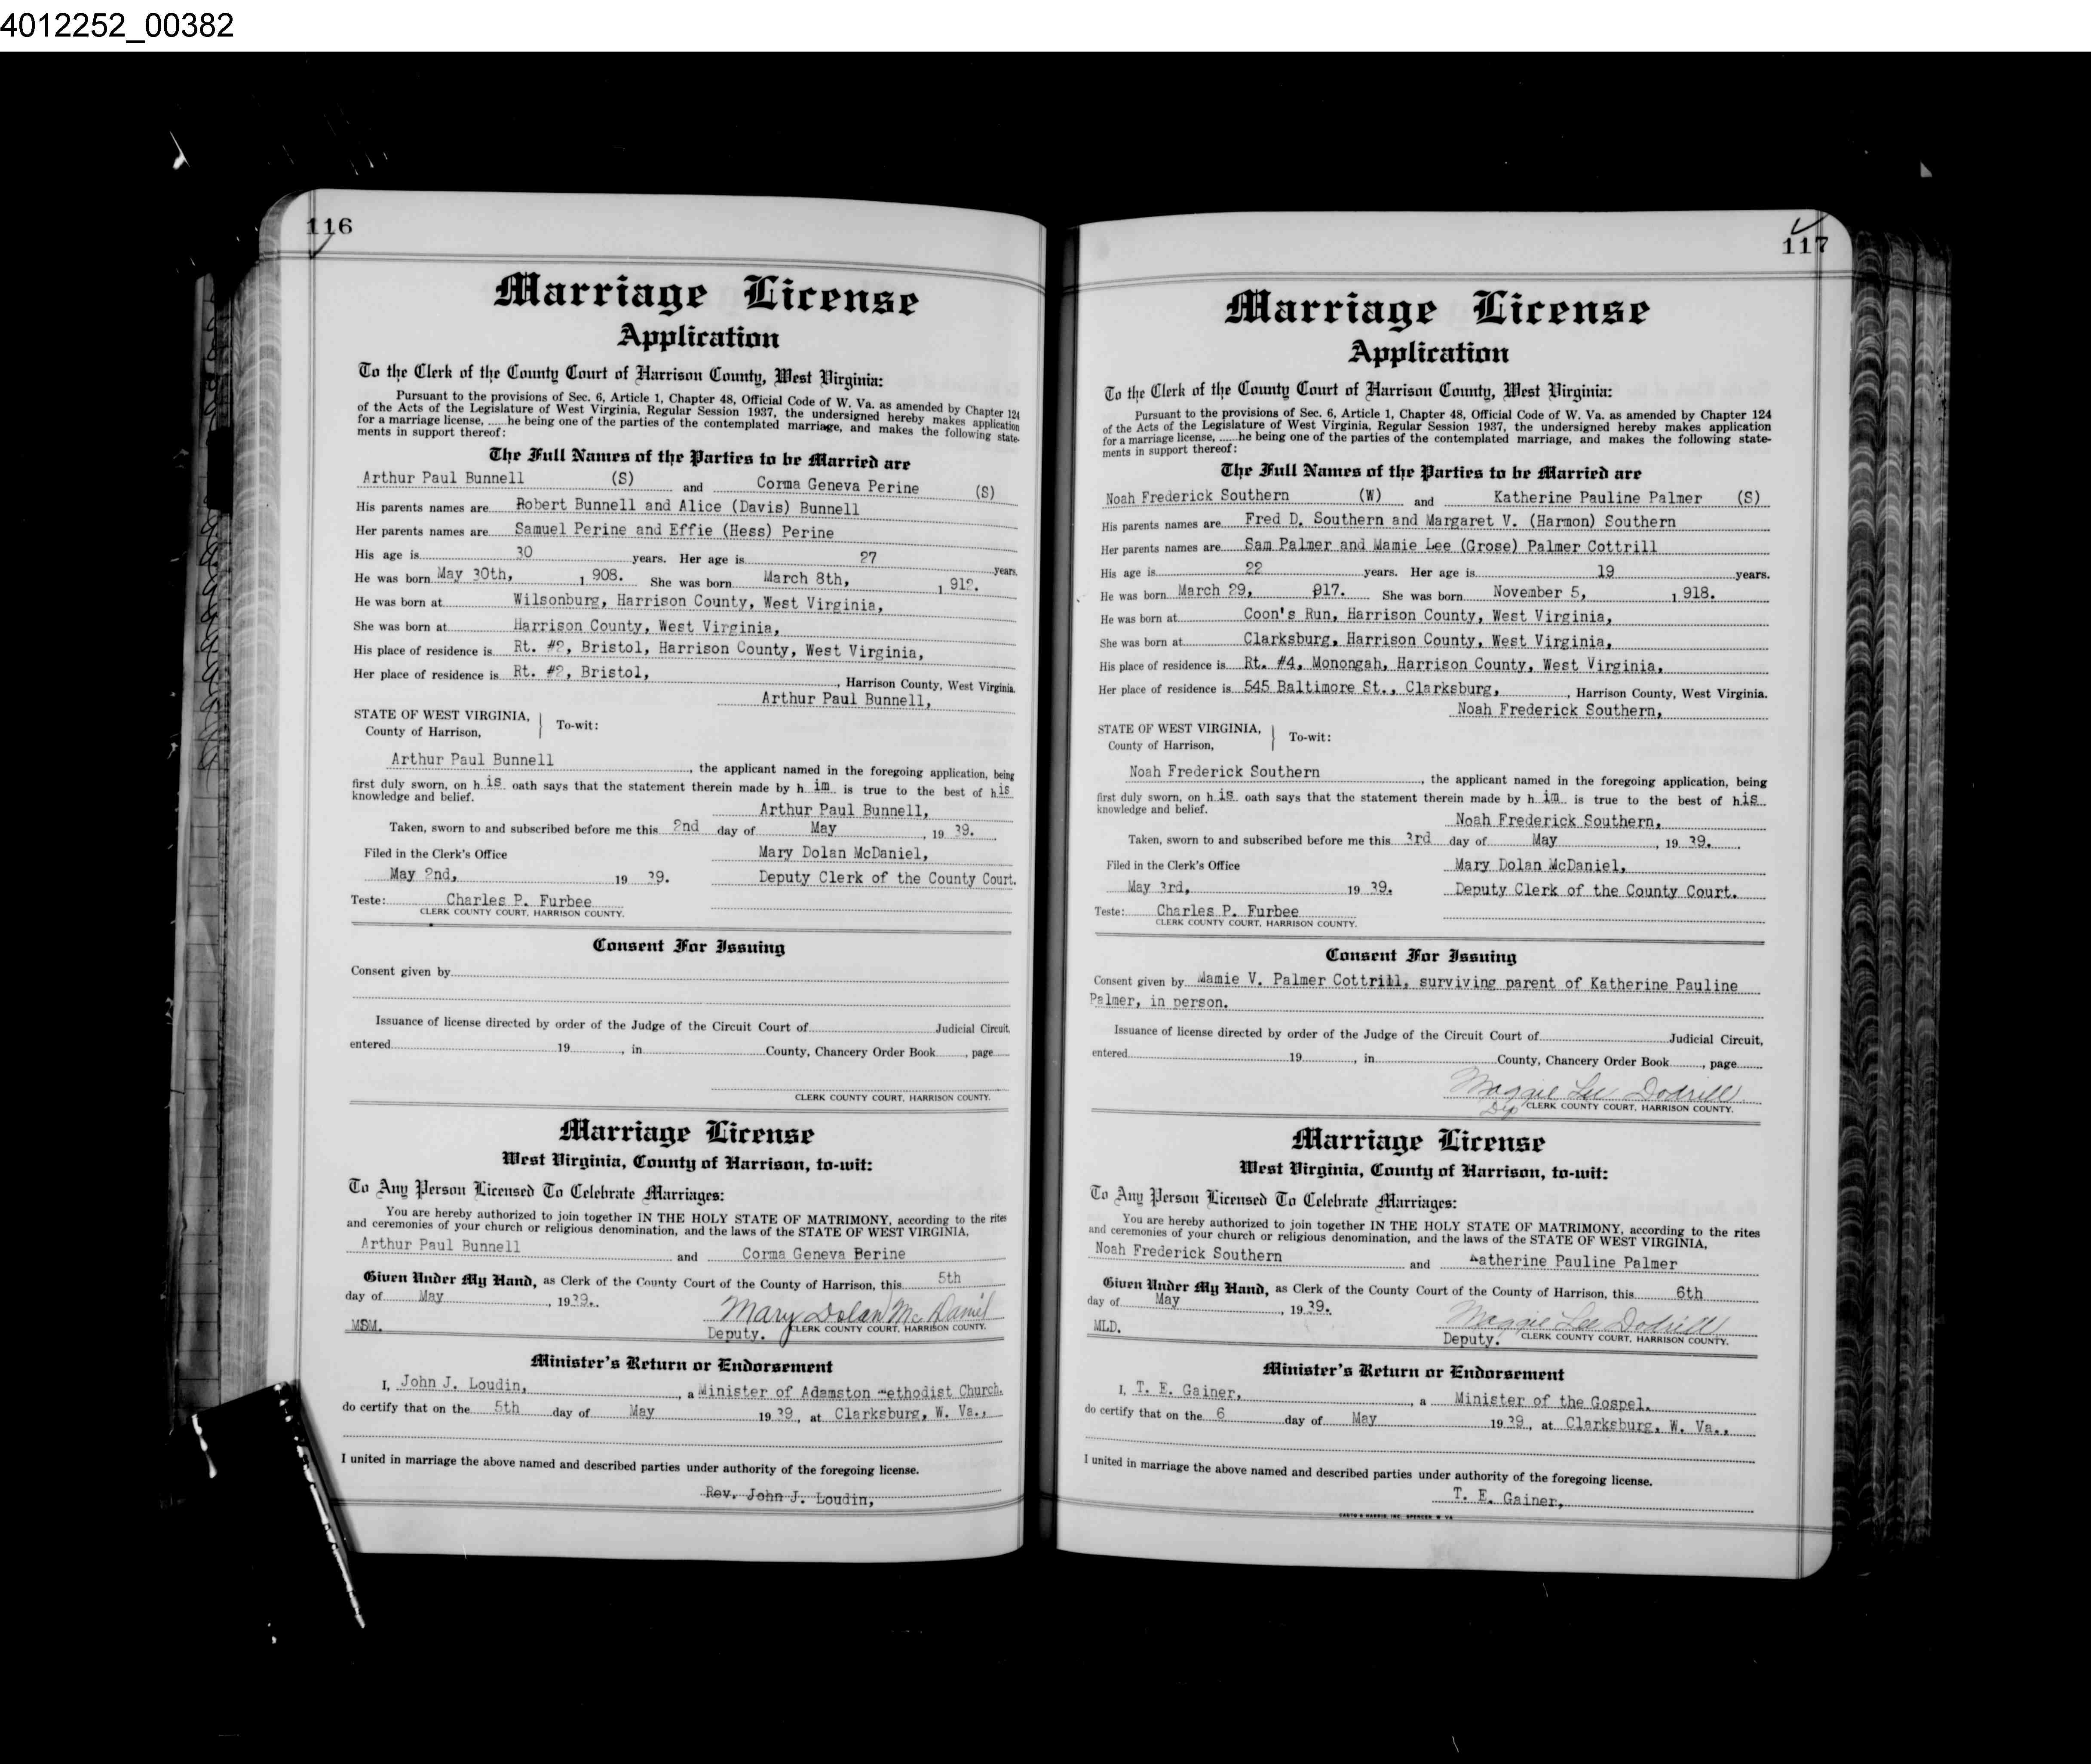 4012252_00382
116
Marriage License
Application
To the Clerk of the County Court of Harrison County, West Virginia:
Pursuant to the provisions of Sec. 6, Article 1, Chapter 48, Official Code of W. Va. as amended by Chapter 124
of the Acts of the Legislature of West Virginia, Regular Session 1937, the undersigned hereby makes application
for a marriage license, ......he being one of the parties of the contemplated marriage, and makes the following state-
ments in support thereof:
The Full Names of the Parties to be Married are
Arthur Paul Bunnell (S) and Corma Geneva Perine (S)
His parents names are Robert Bunnell and Alice (Davis) Bunnell
Her parents names are Samuel Perine and Effie (Hess) Perine
His age is 30 years. Her age is 27 years.
He was born May 30th, 1 908. She was born March 8th, 1 912.
He was born at Wilsonburg, Harrison County, West Virginia,
She was born at Harrison County, West Virginia,
His place of residence is Rt. #2, Bristol, Harrison County, West Virginia,
Her place of residence is Rt. #2, Bristol, , Harrison County, West Virginia.
Arthur Paul Bunnell,
STATE OF WEST VIRGINIA,
County of Harrison, To-wit:
Arthur Paul Bunnell , the applicant named in the foregoing application, being
first duly sworn, on h is oath says that the statement therein made by h im is true to the best of h is
knowledge and belief.
Arthur Paul Bunnell,
Taken, sworn to and subscribed before me this 2nd day of May , 19 39.
Filed in the Clerk's Office Mary Dolan McDaniel,
May 2nd, 19 39. Deputy Clerk of the County Court.
Teste: Charles P. Furbee
CLERK COUNTY COURT, HARRISON COUNTY.
Consent For Issuing
Consent given by
Issuance of license directed by order of the Judge of the Circuit Court of Judicial Circuit,
entered 19 , in County, Chancery Order Book , page
CLERK COUNTY COURT, HARRISON COUNTY.
Marriage License
West Virginia, County of Harrison, to-wit:
To Any Person Licensed To Celebrate Marriages:
You are hereby authorized to join together IN THE HOLY STATE OF MATRIMONY, according to the rites
and ceremonies of your church or religious denomination, and the laws of the STATE OF WEST VIRGINIA,
Arthur Paul Bunnell and Corma Geneva Berine
Given Under My Hand, as Clerk of the County Court of the County of Harrison, this 5th
day of May , 19 39.
Mary Dolan McDaniel
MSM. Deputy. CLERK COUNTY COURT, HARRISON COUNTY.
Minister's Return or Endorsement
I, John J. Loudin, , a Minister of Adamston Methodist Church.
do certify that on the 5th day of May 19 39, at Clarksburg, W. Va.,
I united in marriage the above named and described parties under authority of the foregoing license.
Rev. John J. Loudin,
117
Marriage License
Application
To the Clerk of the County Court of Harrison County, West Virginia:
Pursuant to the provisions of Sec. 6, Article 1, Chapter 48, Official Code of W. Va. as amended by Chapter 124
of the Acts of the Legislature of West Virginia, Regular Session 1937, the undersigned hereby makes application
for a marriage license, ......he being one of the parties of the contemplated marriage, and makes the following state-
ments in support thereof:
The Full Names of the Parties to be Married are
Noah Frederick Southern (W) and Katherine Pauline Palmer (S)
His parents names are Fred D. Southern and Margaret V. (Harmon) Southern
Her parents names are Sam Palmer and Mamie Lee (Grose) Palmer Cottrill
His age is 22 years. Her age is 19 years.
He was born March 29, 917. She was born November 5, 1 918.
He was born at Coon's Run, Harrison County, West Virginia,
She was born at Clarksburg, Harrison County, West Virginia,
His place of residence is Rt. #4, Monongah, Harrison County, West Virginia,
Her place of residence is 545 Baltimore St., Clarksburg, , Harrison County, West Virginia.
Noah Frederick Southern,
STATE OF WEST VIRGINIA,
County of Harrison, To-wit:
Noah Frederick Southern , the applicant named in the foregoing application, being
first duly sworn, on h is oath says that the statement therein made by h im is true to the best of h is
knowledge and belief.
Noah Frederick Southern,
Taken, sworn to and subscribed before me this 3rd day of May , 19 39.
Filed in the Clerk's Office Mary Dolan McDaniel,
May 3rd, 19 39. Deputy Clerk of the County Court.
Teste: Charles P. Furbee
CLERK COUNTY COURT, HARRISON COUNTY.
Consent For Issuing
Consent given by Mamie V. Palmer Cottrill, surviving parent of Katherine Pauline
Palmer, in person.
Issuance of license directed by order of the Judge of the Circuit Court of Judicial Circuit,
entered 19 , in County, Chancery Order Book , page
Maggie Lee Dodrill
Dep CLERK COUNTY COURT, HARRISON COUNTY.
Marriage License
West Virginia, County of Harrison, to-wit:
To Any Person Licensed To Celebrate Marriages:
You are hereby authorized to join together IN THE HOLY STATE OF MATRIMONY, according to the rites
and ceremonies of your church or religious denomination, and the laws of the STATE OF WEST VIRGINIA,
Noah Frederick Southern and Katherine Pauline Palmer
Given Under My Hand, as Clerk of the County Court of the County of Harrison, this 6th
day of May , 19 39.
Maggie Lee Dodrill
MLD. Deputy. CLERK COUNTY COURT, HARRISON COUNTY.
Minister's Return or Endorsement
I, T. E. Gainer, , a Minister of the Gospel.
do certify that on the 6 day of May 19 39, at Clarksburg, W. Va.,
I united in marriage the above named and described parties under authority of the foregoing license.
T. E. Gainer,